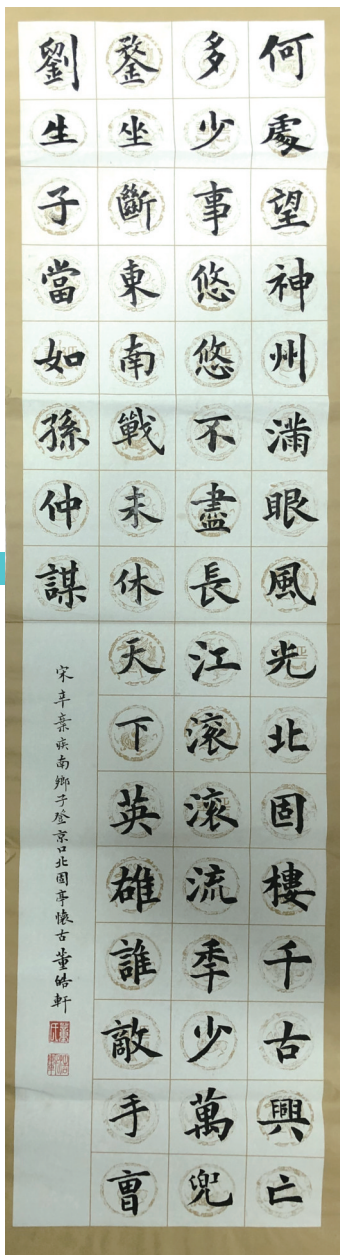 何處望神州滿眼風光北固樓千古興亡
多少事悠悠不盡長江滾滾流秊少萬兜
鍪坐斷東南戰未休天下英雄誰敵手曺
劉生子當如孫仲謀
宋辛棄疾南鄉子登京口北固亭懷古董皓軒